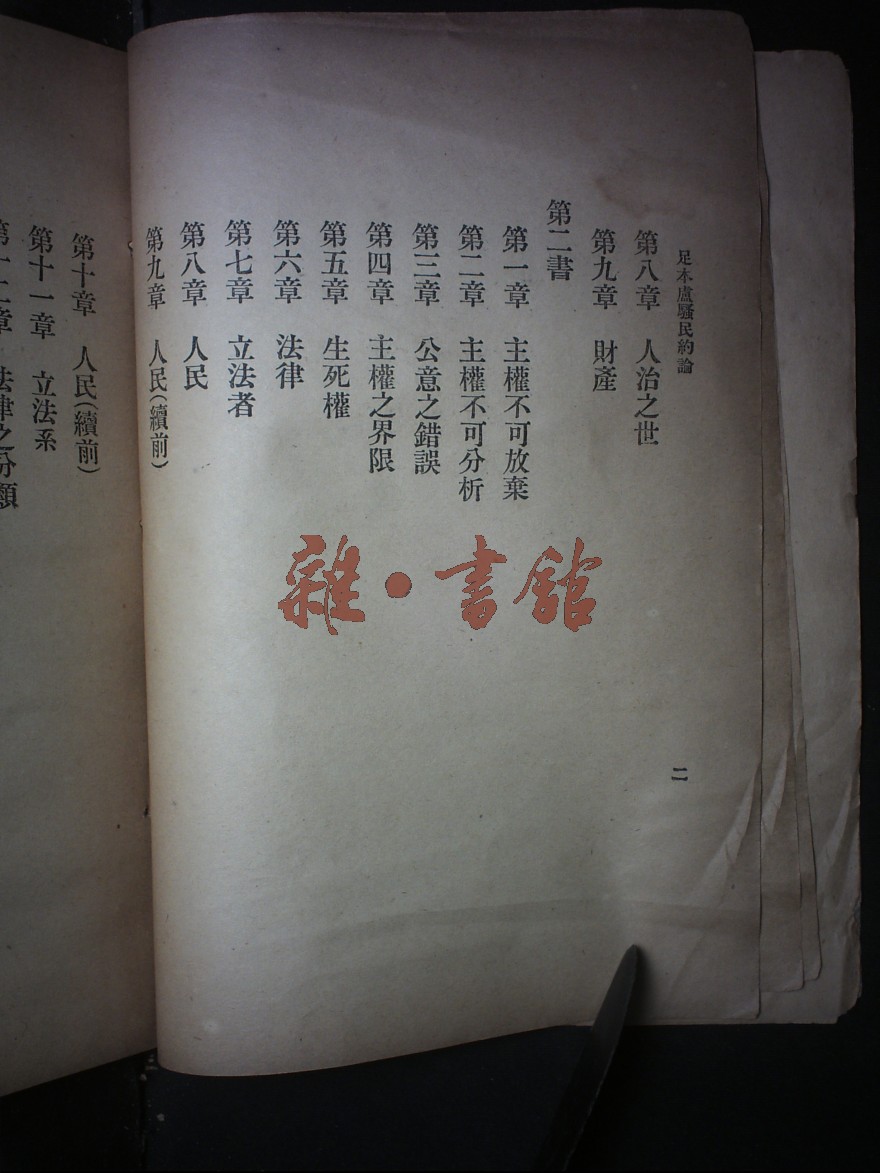 足本盧騷民約論
第八章 人治之世
第九章 財產
第二書
第一章 主權不可放棄
第二章 主權不可分析
第三章 公意之錯誤
第四章 主權之界限
第五章 生死權
第六章 法律
第七章 立法者
第八章 人民
第九章 人民(續前)
二
第十章 人民(續前)
第十一章 立法系
第十二章 法律之分類
雜•書館